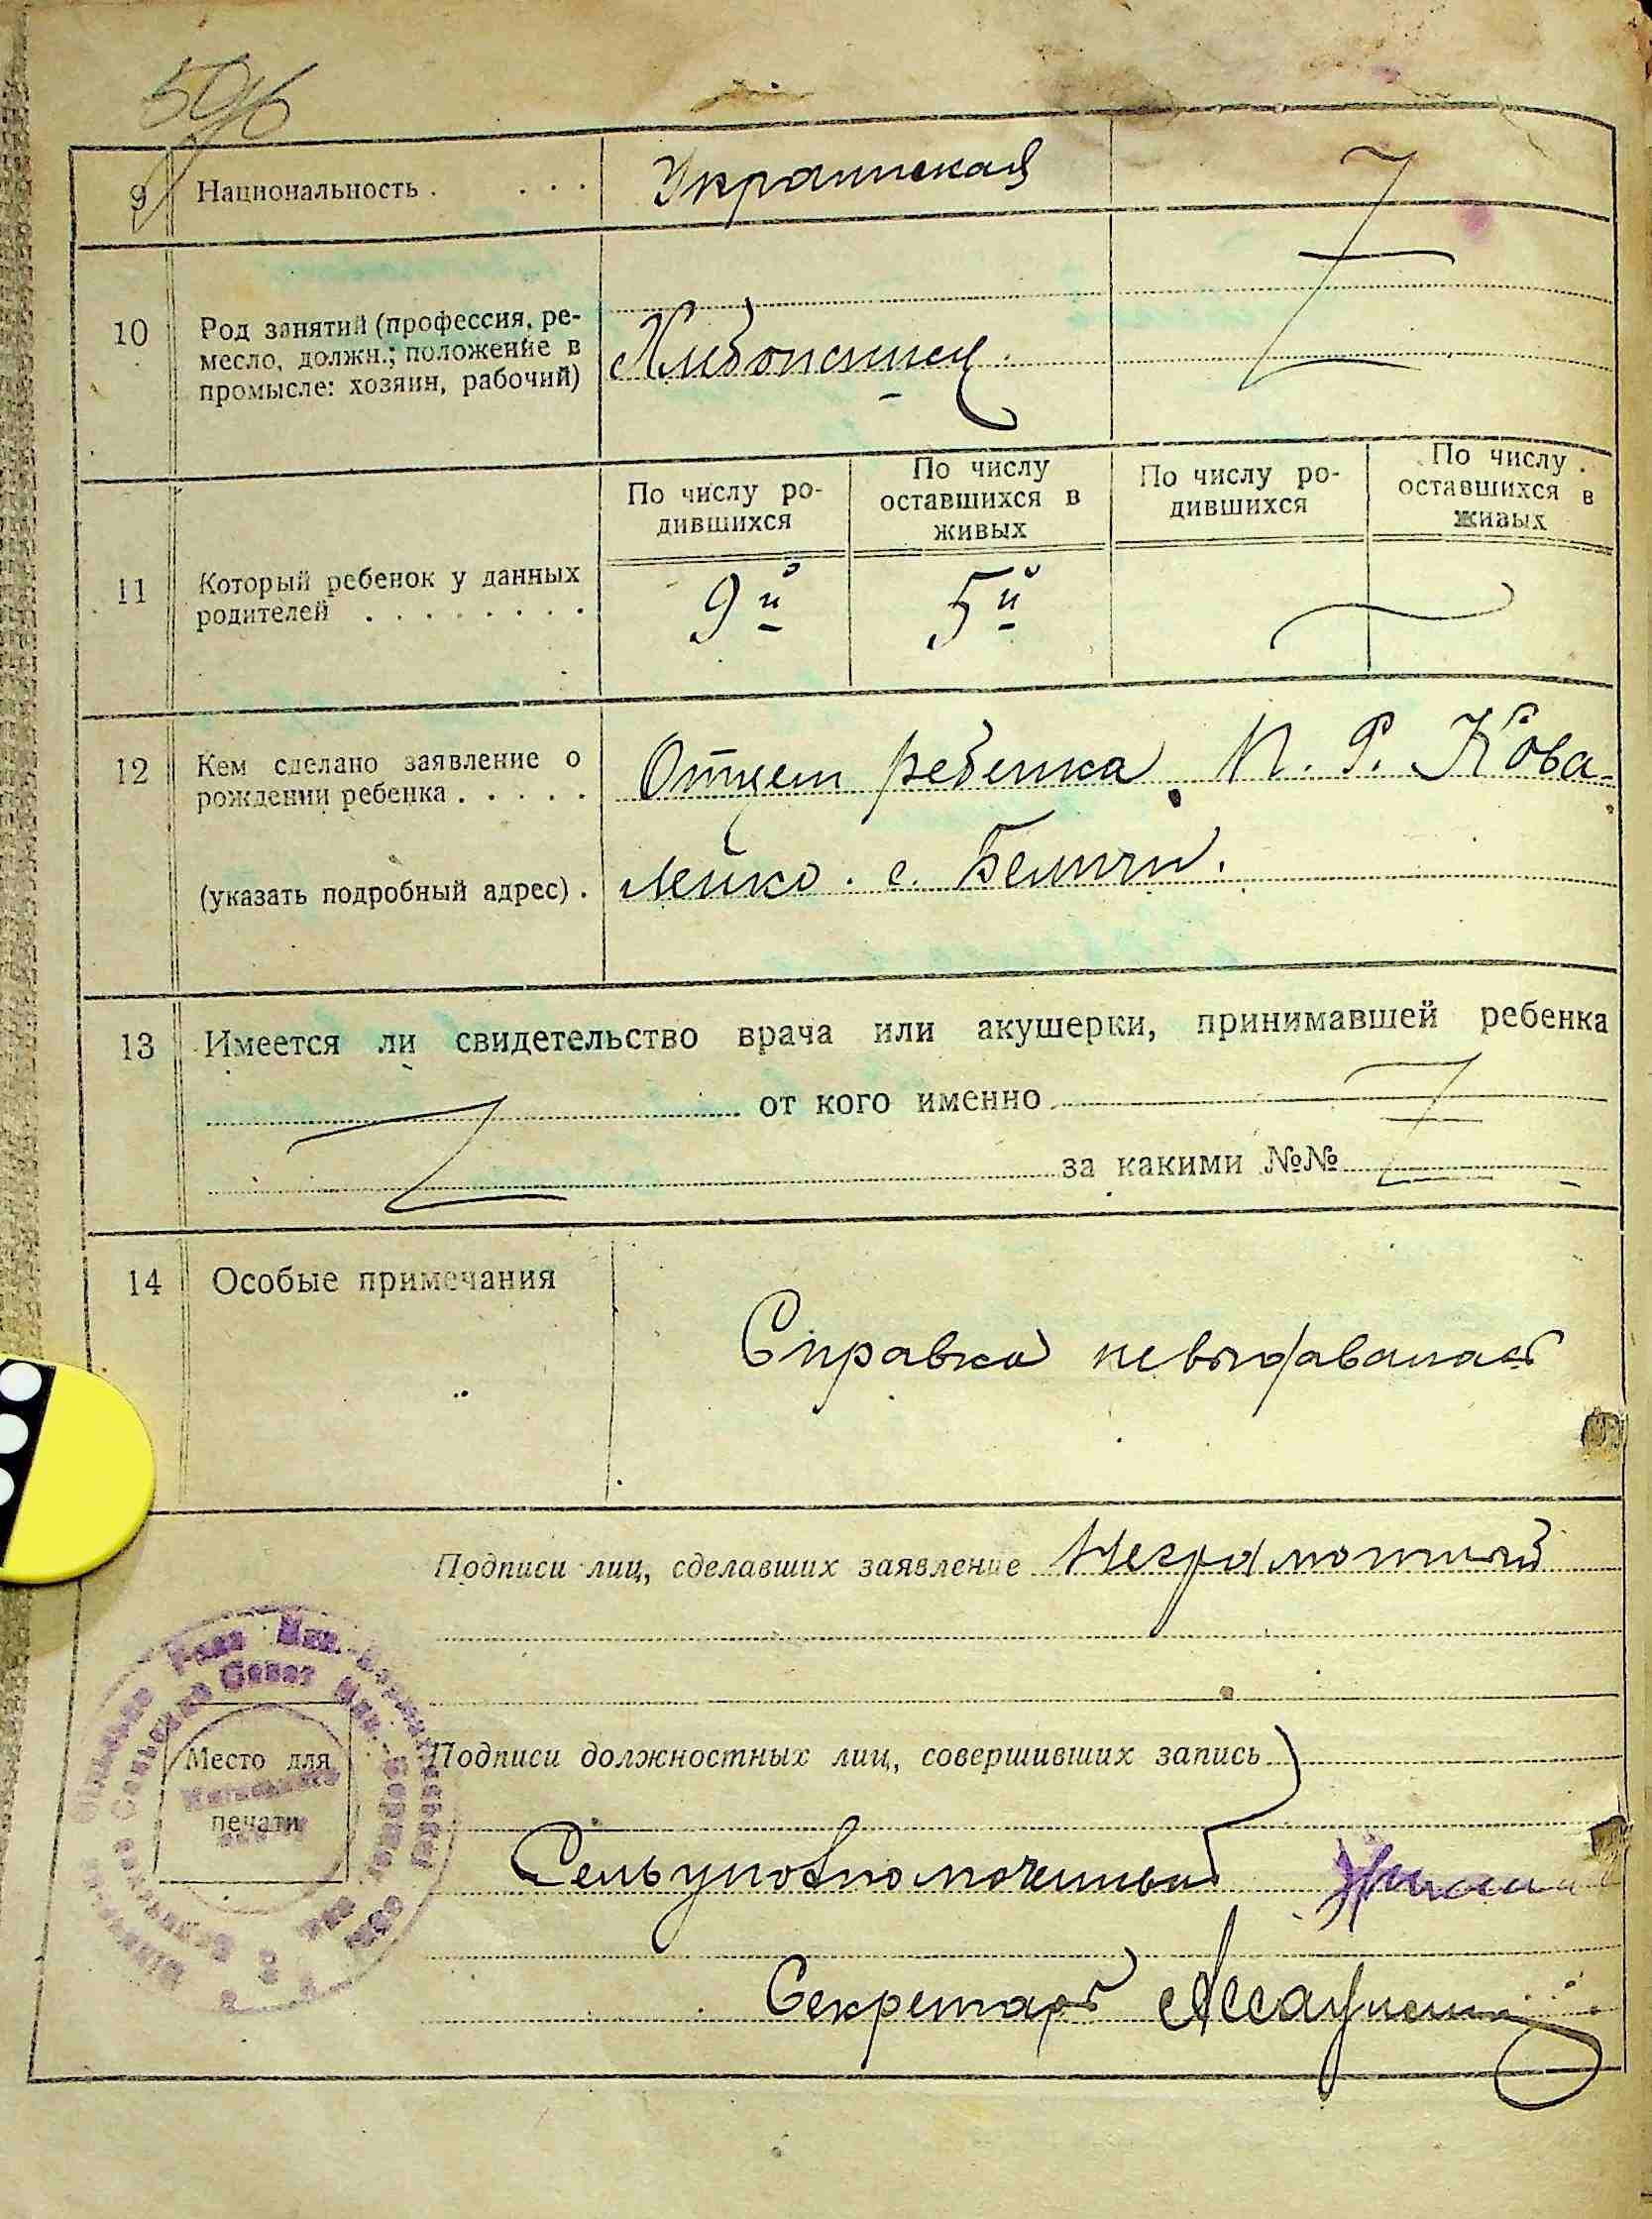 50/6
9 Национальность . . . . Украинская
10 Род занятий (профессия, ре-
месло, должн.; положение в
промысле: хозяин, рабочий)
Хлибопашец.
По числу ро-
дившихся
По числу
оставшихся в
живых
По числу ро-
дившихся
По числу
оставшихся в
живых
11 Который ребенок у данных
родителей . . . . . . . .
9й 5й
12 Кем сделано заявление о
рождении ребенка . . . . .
Отцем ребенка
Кова-
(указать подробный адрес) .
лейко. с. Беличи.
13 Имеется ли свидетельство врача или акушерки, принимавшей ребенка
от кого именно
за какими №№
14 Особые примечания
Справка невыдавалась
Подписи лиц, сделавших заявление Неграмотный
Подписи должностных лиц, совершивших запись
Место для
печати
Сельуповномоченный
Секретарь